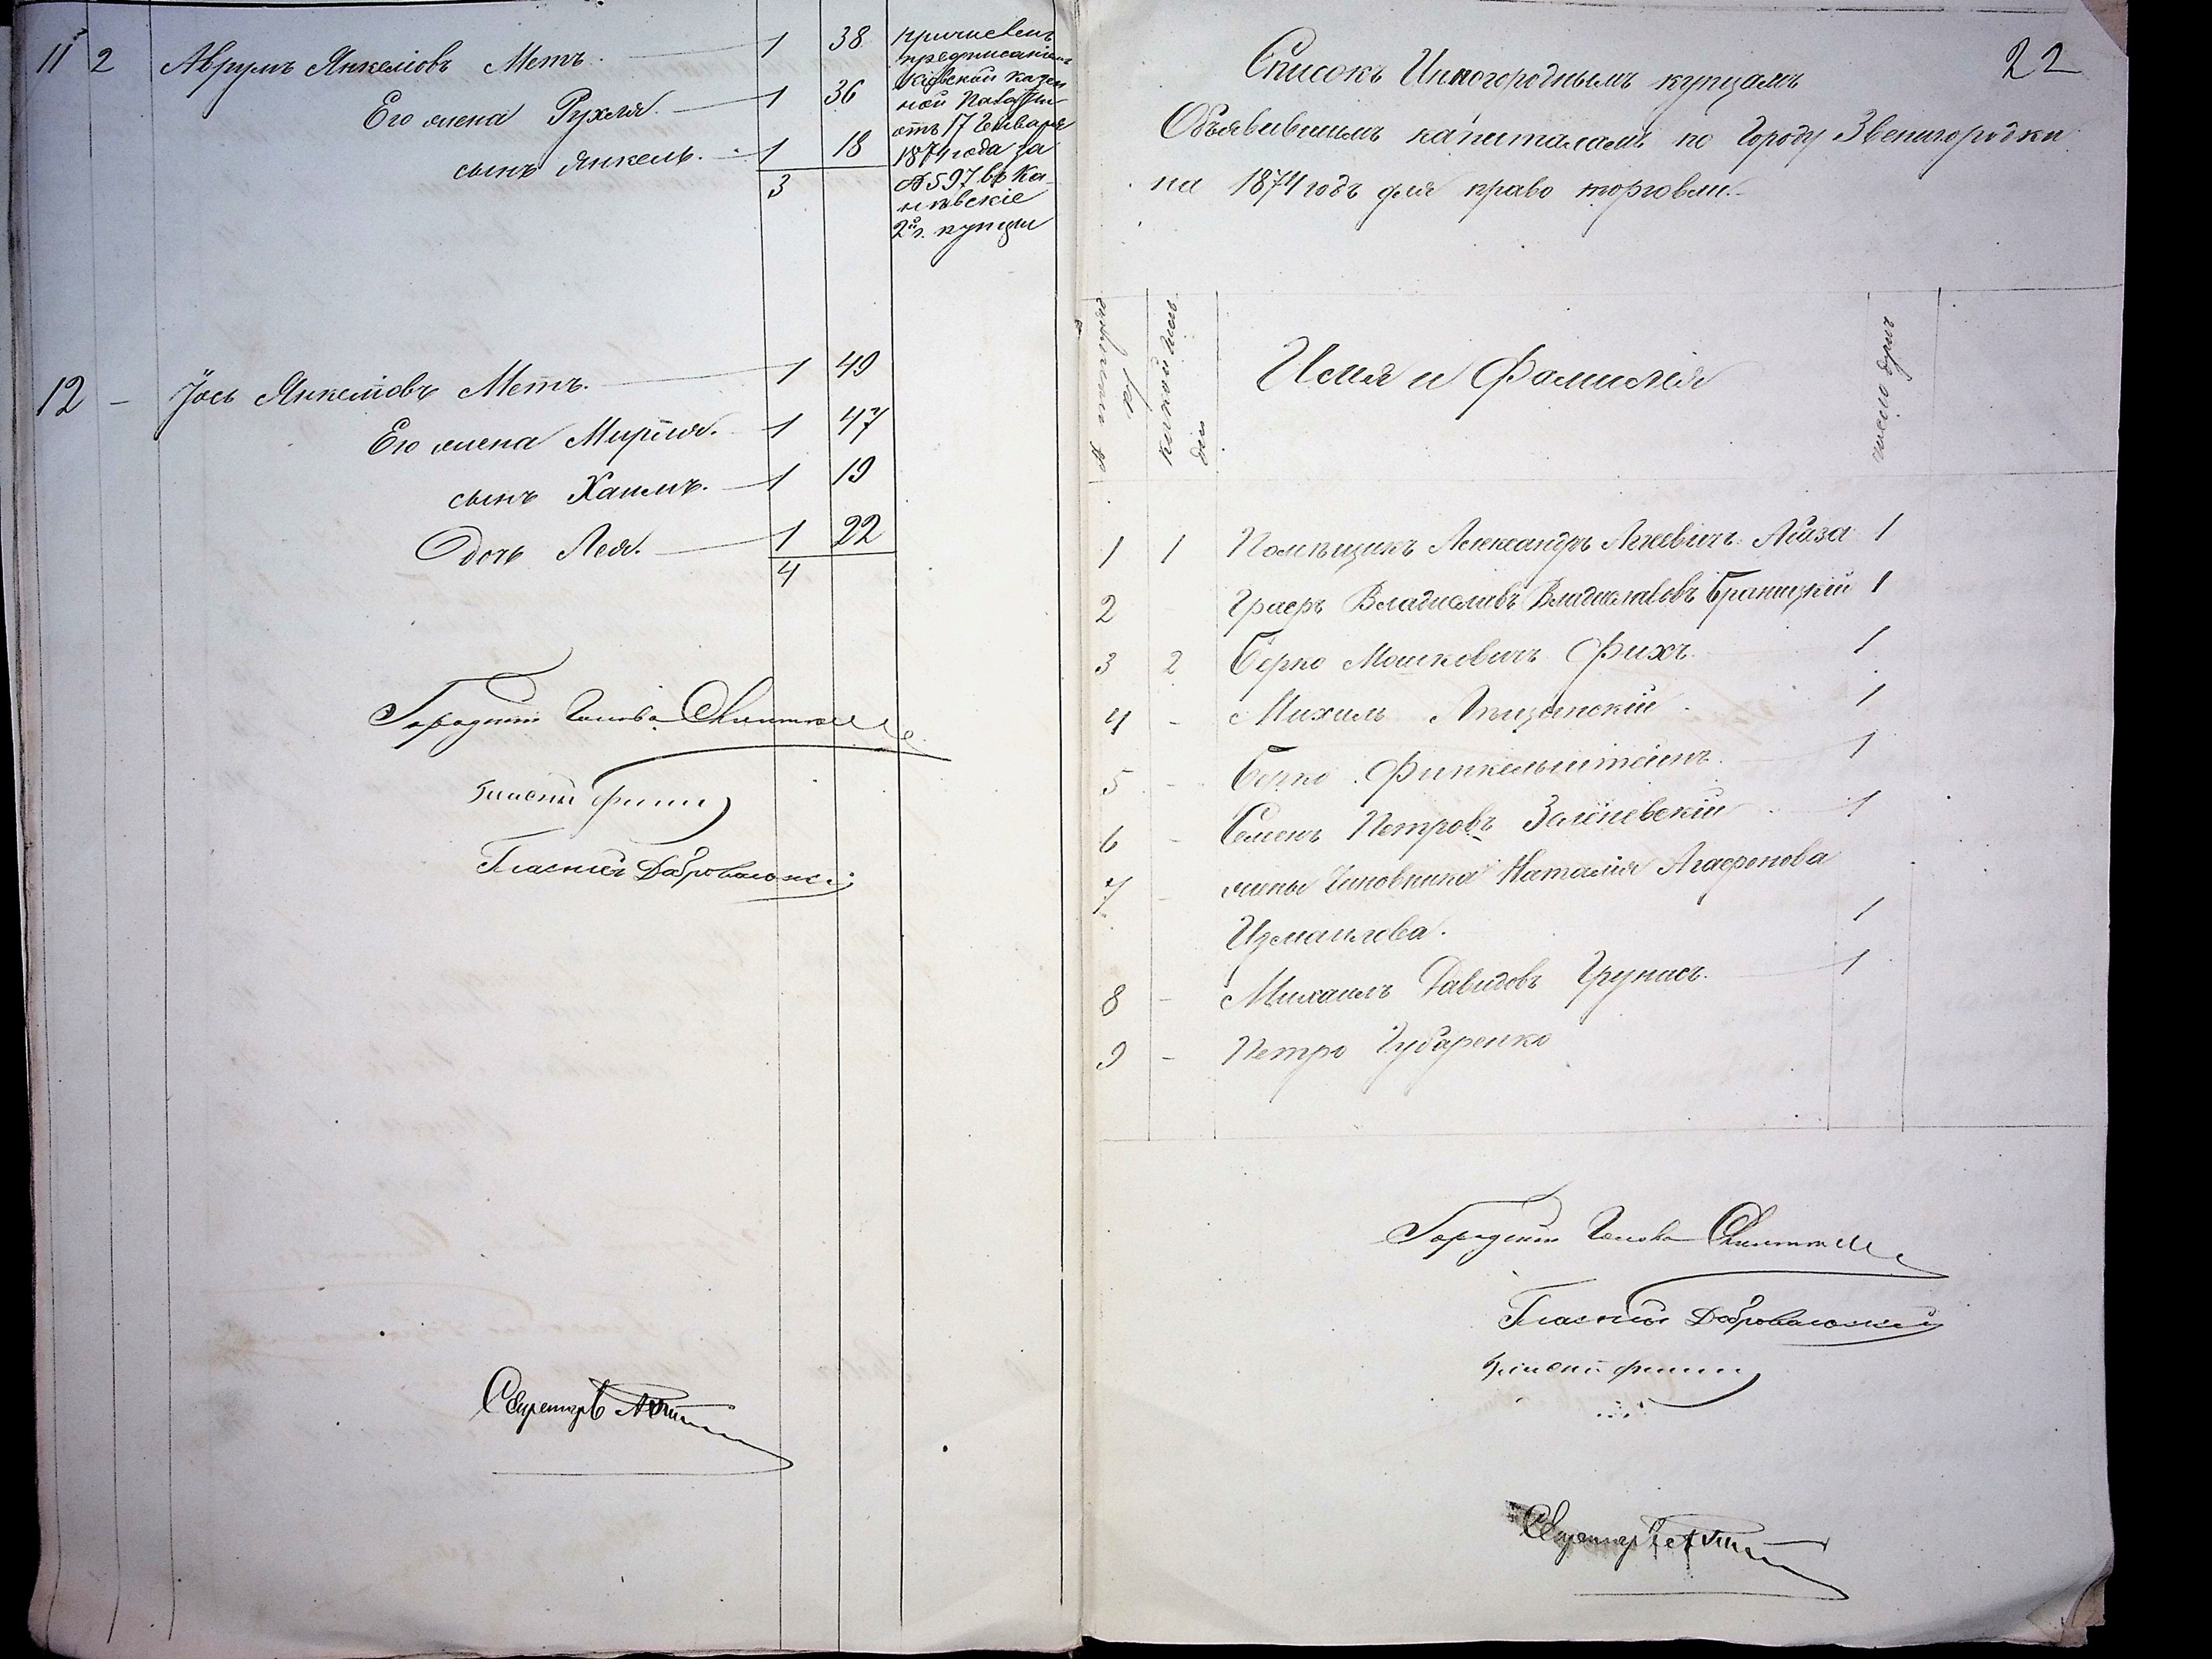 11 2 Аврумъ Янкелiовъ Метъ. 1 38
Его жена Рухля. 1 36
сынъ Янкель. 1 18
3
причисленъ
предписанiемъ
Кiевской казен
ной Палаты
отъ 17 Генваря
1874 года за
№ 597 въ Ка
невскiе
2й г. купцы
12 - Iось Янкелiовъ Метъ. 1 49
Его жена Мирля. 1 47
сынъ Хаимъ. 1 19
Дочь Лея. 1 22
4
Городской Голова
Гласный
Гласный Доброволскiй
Секретарь
22
Списокъ Иногороднымъ купцамъ
Объявившимъ капиталамъ по Городу Звенигородки
на 1874 годъ для право торговли.
Имя и Фамилiя
число душъ
1 1 Помѣщикъ Александръ Лиза 1
2 Графъ Владиславъ Владиславовъ Браницкiй 1
3 2 Берко Мошковичъ Фихъ 1
4 - Михель 1
5 - Берко Финкельштейнъ. 1
6 - Семенъ Петровъ Залѣневскiй 1
7 - жены Чиновника Наталiя Агафонова
Измаилова. 1
8 - Михаилъ Давидовъ Грунасъ. 1
9 - Петро Чубаренко
Городской Голова
Гласный Доброволскiй
Гласный
Секретарь